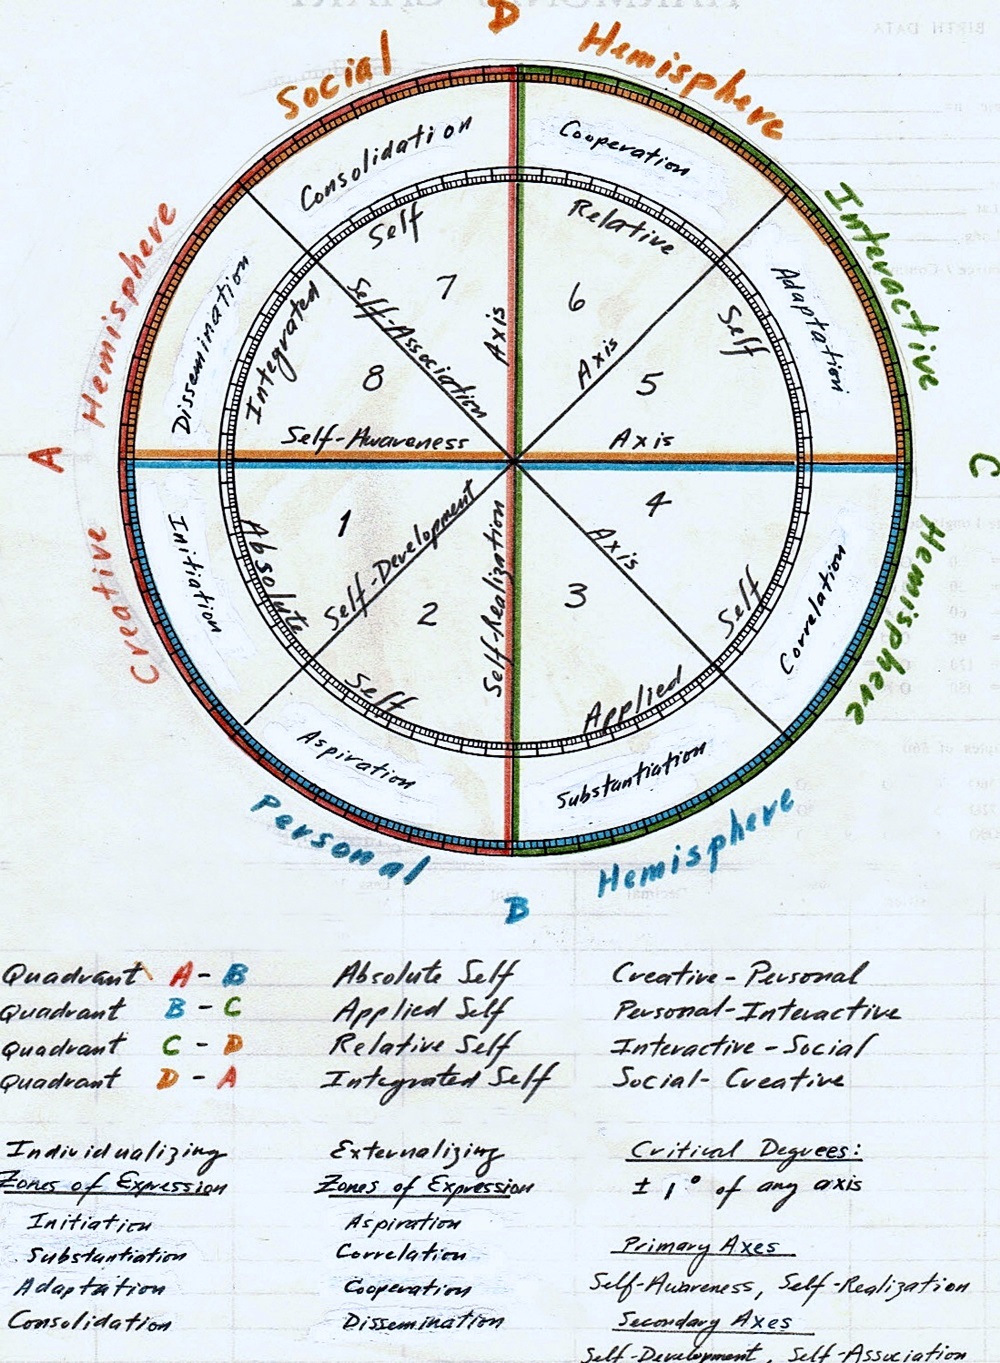 D
Social Hemisphere
Creative Hemisphere
Interactive Hemisphere
Personal Hemisphere
A
C
B
Consolidation
Cooperation
Dissemination
Adaptation
Initiation
Correlation
Aspiration
Substantiation
Integrated Self
Relative Self
Absolute Self
Applied Self
7
6
8
5
1
4
2
3
Self-Association Axis
Self-Awareness Axis
Self-Development Axis
Self-Realization Axis
Quadrant A - B Absolute Self Creative-Personal
Quadrant B - C Applied Self Personal-Interactive
Quadrant C - D Relative Self Interactive-Social
Quadrant D - A Integrated Self Social-Creative
Individualizing
Zones of Expression
Initiation
Substantiation
Adaptation
Consolidation
Externalizing
Zones of Expression
Aspiration
Correlation
Cooperation
Dissemination
Critical Degrees:
± 1° of any axis
Primary Axes
Self-Awareness, Self-Realization
Secondary Axes
Self-Development, Self-Association